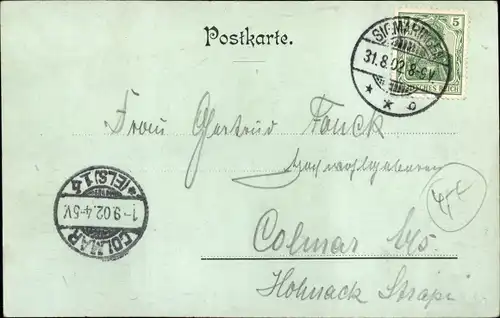 Postkarte.
5
DEUTSCHES REICH
SIGMARINGEN
31.8.02.8-9V.
* * b
Frau Gertrud Fonck
Hochwohlgeboren
COLMAR
1-9.02.4-5V.
*(ELS)1.4
Colmar Els.
Hohnack Straße